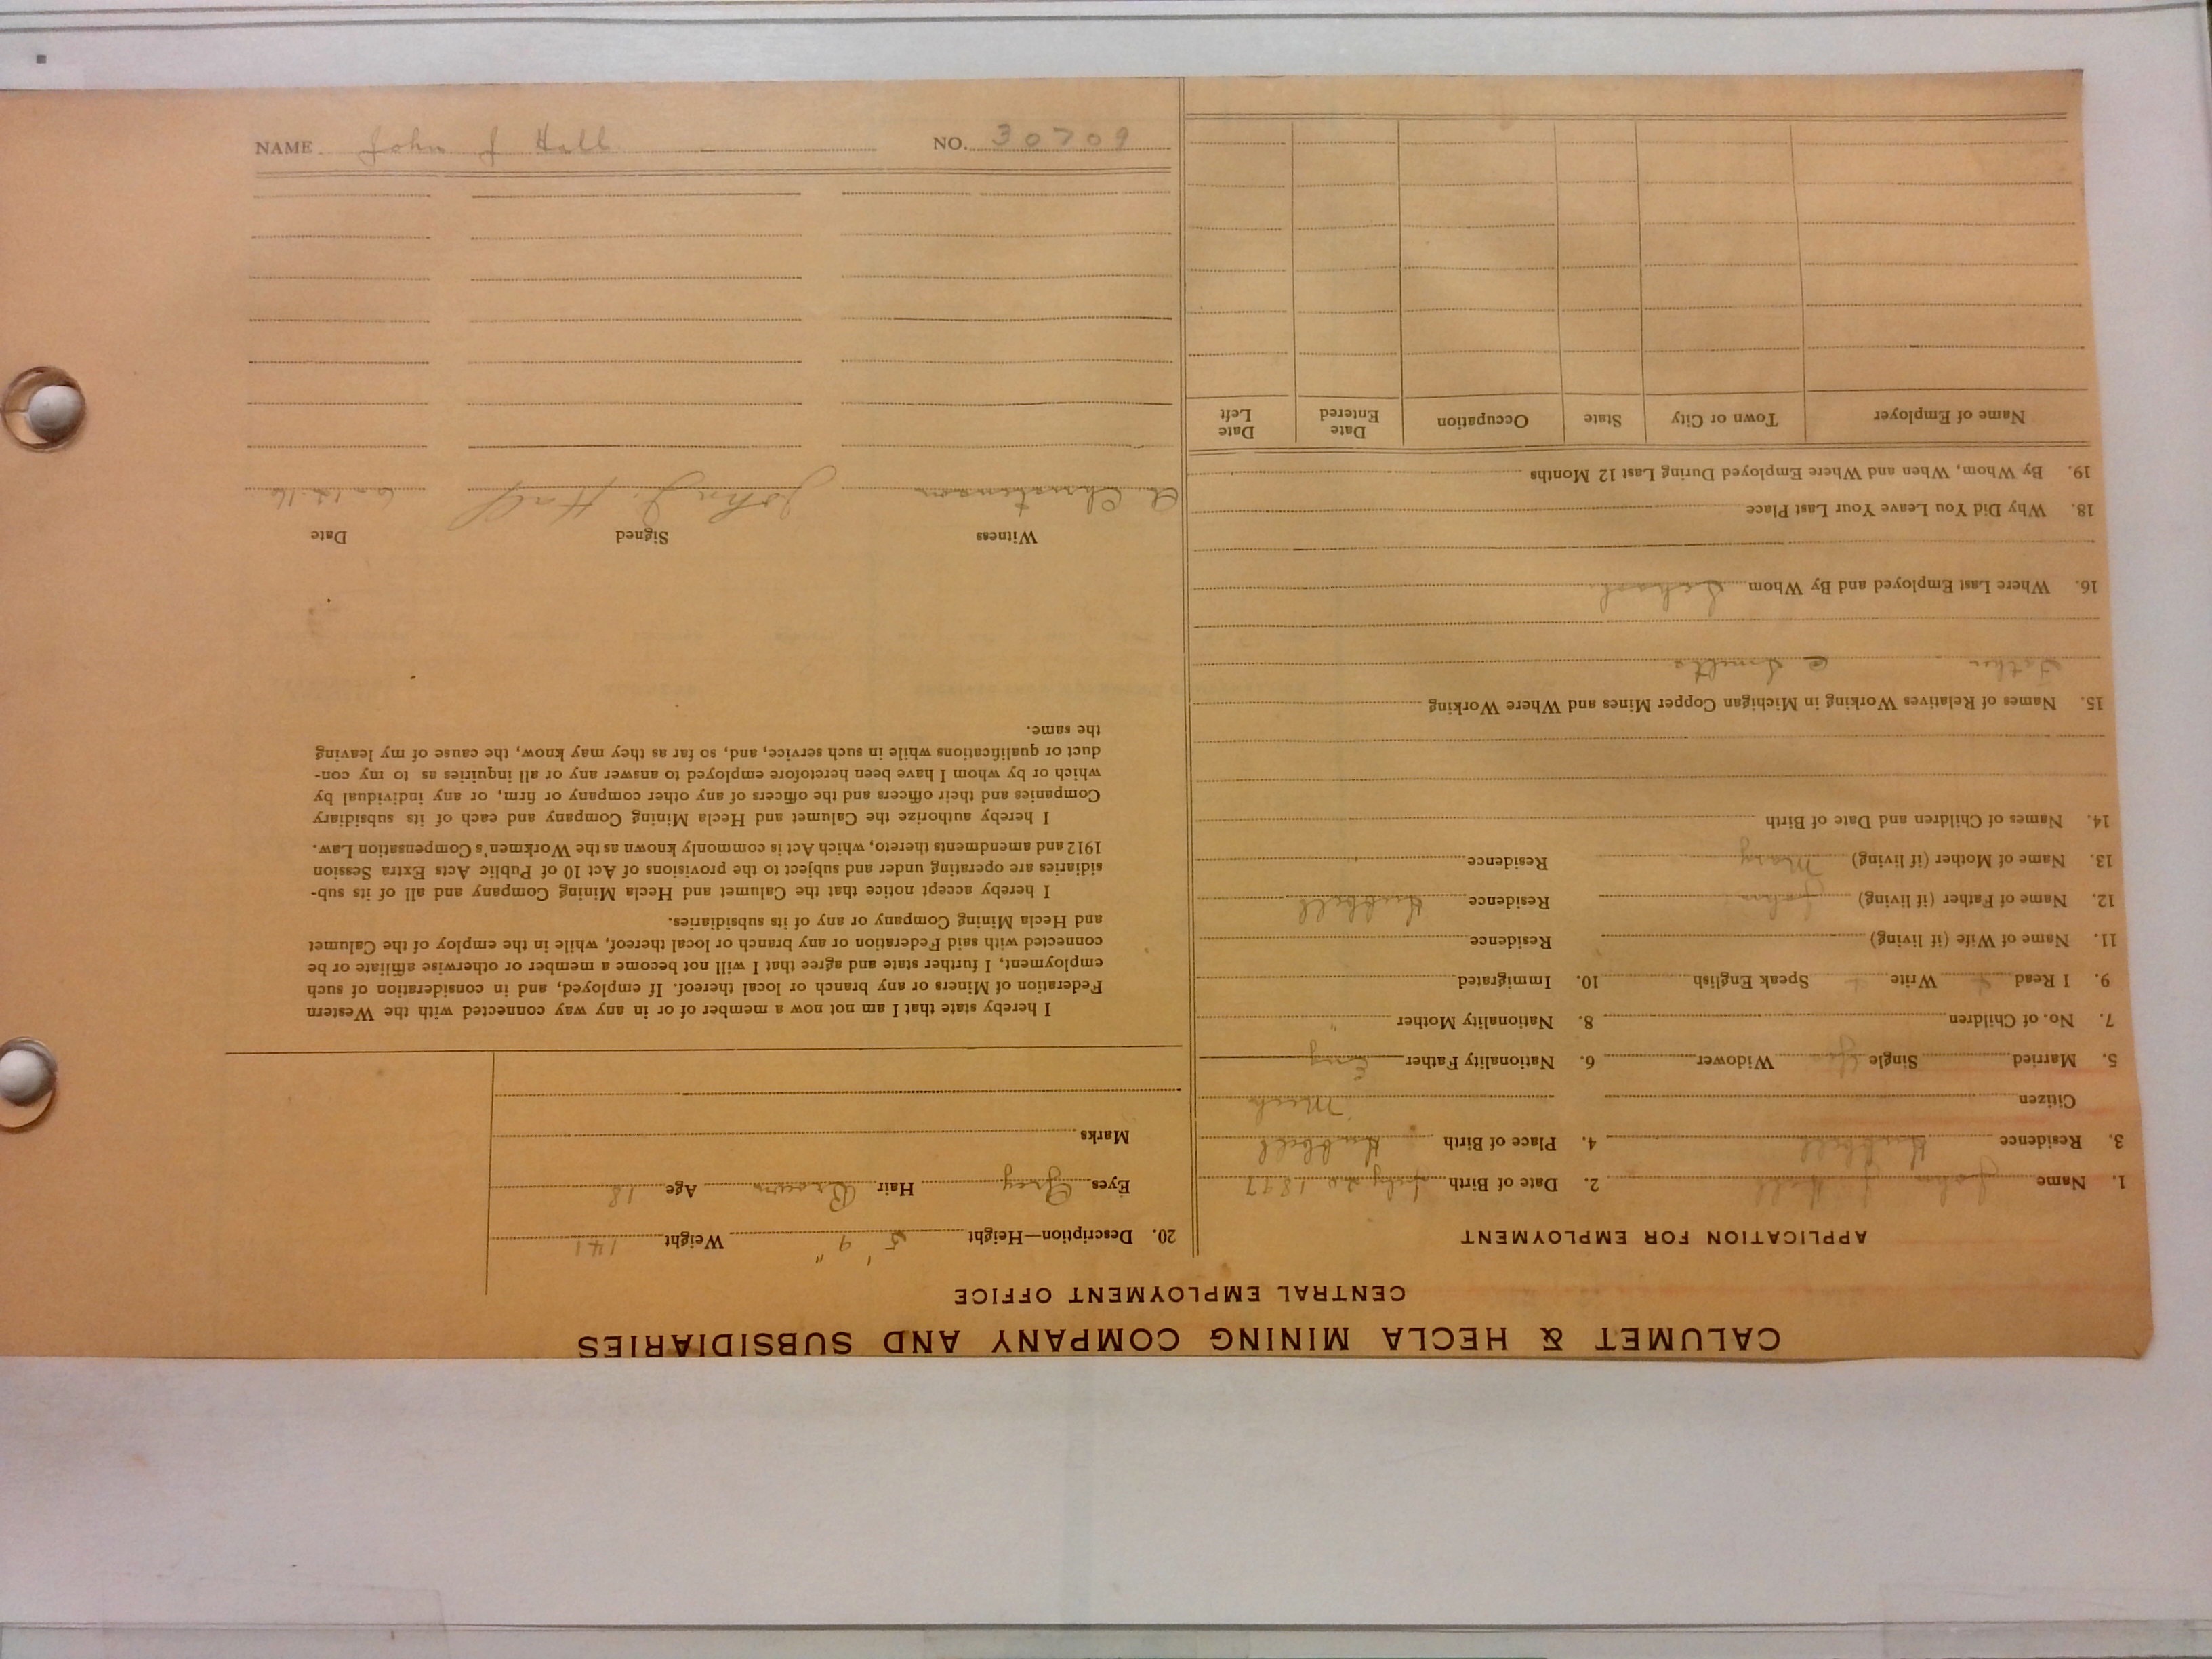 CALUMET & HECLA MINING COMPANY AND SUBSIDIARIES
CENTRAL EMPLOYMENT OFFICE
APPLICATION FOR EMPLOYMENT
1. Name John J. Hall 2. Date of Birth July 20 1897
3. Residence Hubbell 4. Place of Birth Hubbell
Citizen Mich
5. Married Single Yes Widower 6. Nationality Father Eng
7. No. of Children 8. Nationality Mother "
9. I Read Write Speak English 10. Immigrated
11. Name of Wife (if living) Residence
12. Name of Father (if living) John Residence Hubbell
13. Name of Mother (if living) Mary Residence
14. Names of Children and Date of Birth
15. Names of Relatives Working in Michigan Copper Mines and Where Working
Father C Smelts
16. Where Last Employed and By Whom School
18. Why Did You Leave Your Last Place
19. By Whom, When and Where Employed During Last 12 Months
Name of Employer Town or City State Occupation Date Entered Date Left
20. Description—Height 5' 9" Weight 141
Eyes Grey Hair Brown Age 18
Marks
I hereby state that I am not now a member of or in any way connected with the Western
Federation of Miners or any branch or local thereof. If employed, and in consideration of such
employment, I further state and agree that I will not become a member or otherwise affiliate or be
connected with said Federation or any branch or local thereof, while in the employ of the Calumet
and Hecla Mining Company or any of its subsidiaries.
I hereby accept notice that the Calumet and Hecla Mining Company and all of its sub-
sidiaries are operating under and subject to the provisions of Act 10 of Public Acts Extra Session
1912 and amendments thereto, which Act is commonly known as the Workmen's Compensation Law.
I hereby authorize the Calumet and Hecla Mining Company and each of its subsidiary
Companies and their officers and the officers of any other company or firm, or any individual by
which or by whom I have been heretofore employed to answer any or all inquiries as to my con-
duct or qualifications while in such service, and, so far as they may know, the cause of my leaving
the same.
Witness Signed Date
John J. Hall 6-12-16
NAME John J Hall NO. 30709